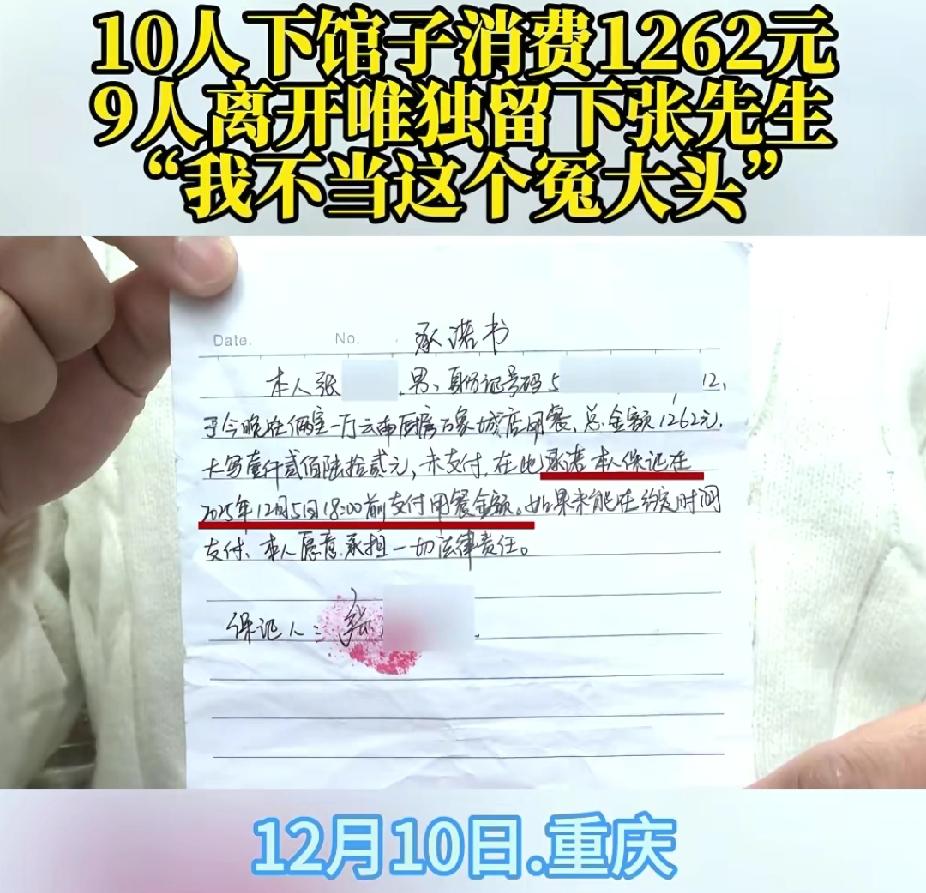 10人下馆子消费1262元
9人离开唯独留下张先生
“我不当这个冤大头”
Date. No. 承诺书
本人张 男、身份证号码5 12,
于今晚在俩室一厅云南厨房万象城店用餐、总金额1262元,
大写壹仟贰佰陆拾贰元,未支付,在此承诺本人保证在
2025年12月5日18:00前支付用餐金额,如果未能在约定时间
支付、本人愿意承担一切法律责任。
保证人:张
12月10日.重庆